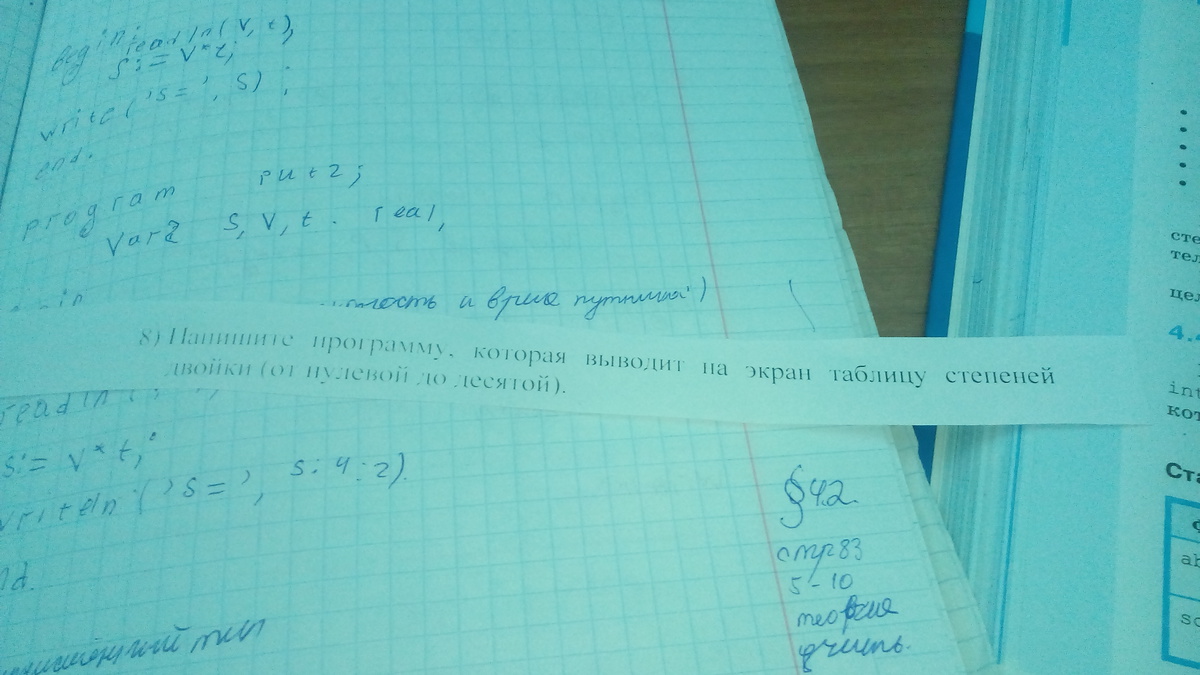 begin;
readln(v, t),
s:= v*t;
write('s=', s);
end.
program put2;
var s, v, t. real,
и время путника')
8) Напишите программу, которая выводит на экран таблицу степеней
двойки (от нулевой до десятой).
readln(
s:= v*t;
writeln('s=', s:4:2).
nd.
тип
§42.
стр83
5-10
учить.
сте
тел
цел
4.
int
кот
Ста
ab